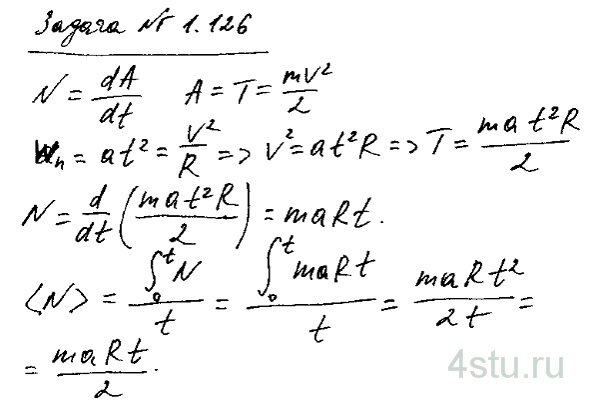 Задача № 1.126
N = dA/dt   A = T = mv²/2
wₙ = at² = v²/R => v² = at²R => T = mat²R/2
N = d/dt (mat²R/2) = maRt.
⟨N⟩ = ∫₀ᵗ N / t = ∫₀ᵗ maRt / t = maRt²/2t =
= maRt/2.
4stu.ru